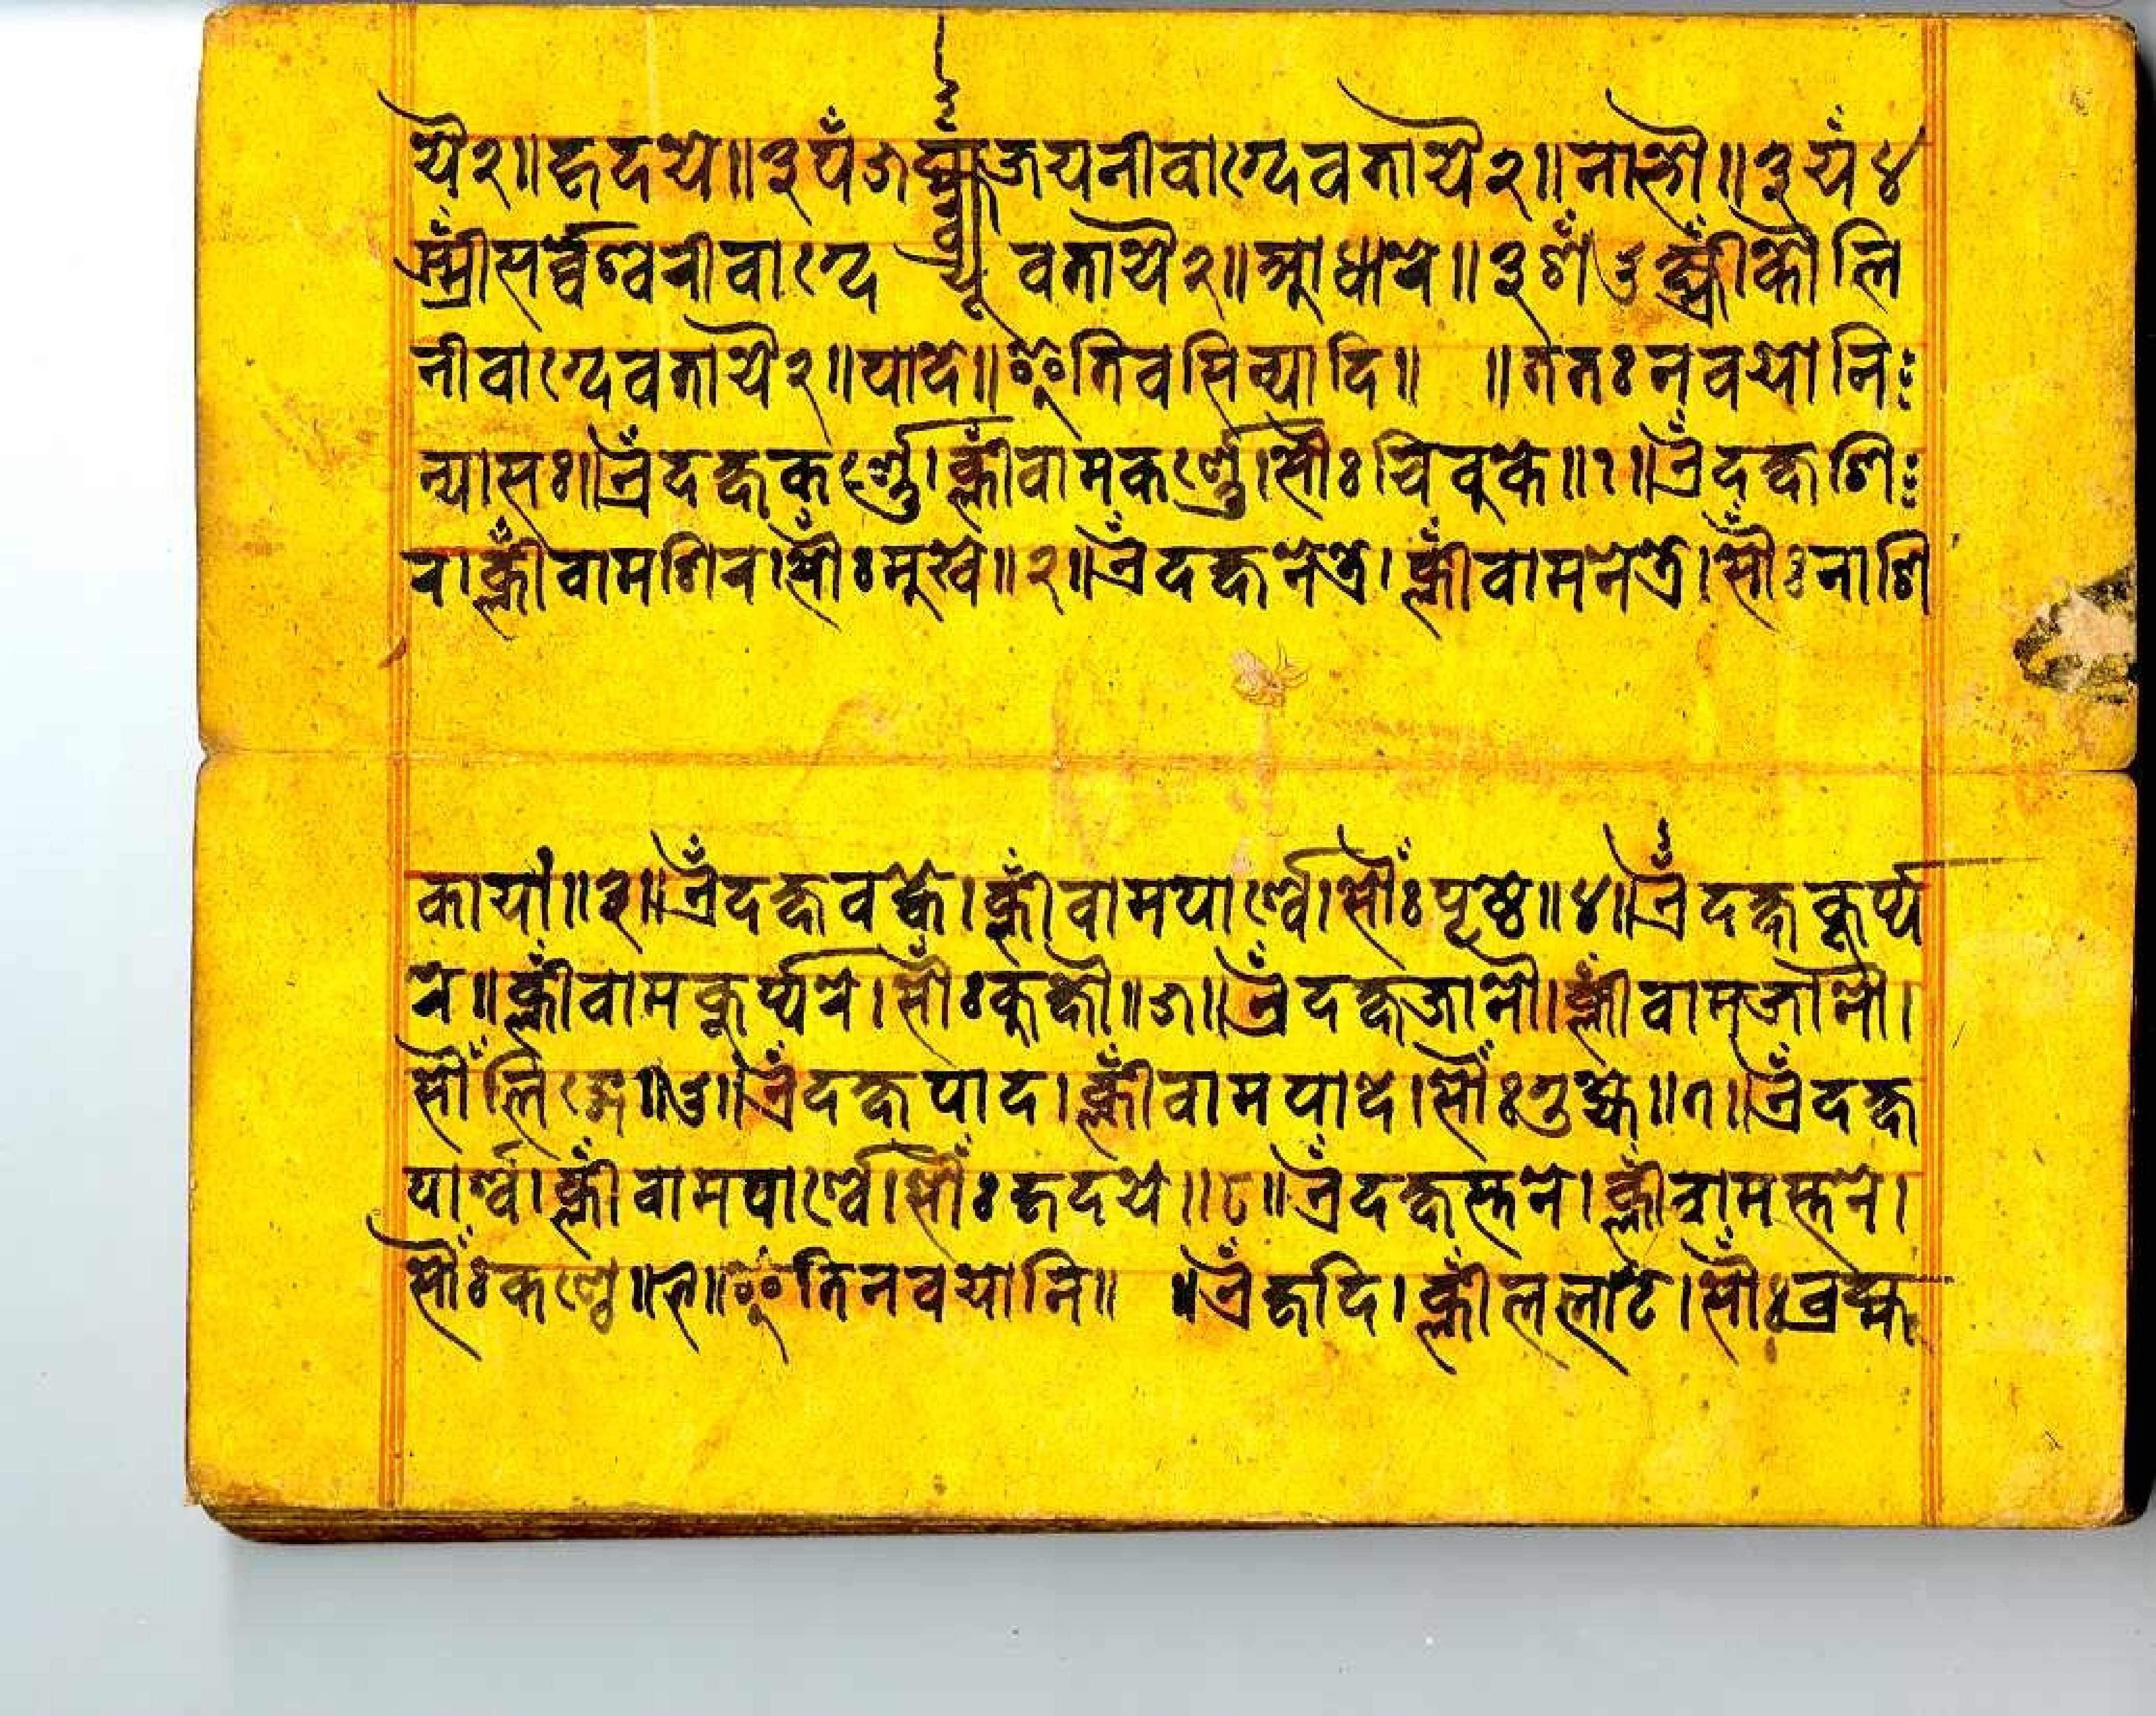 यै२॥हृदये॥३पँ५ह्स्ल्व्यूँजयनीवाग्देवतायै२॥नाभौ॥३यँ४
झ्म्र्यूँसर्व्वेश्वरीवाग्देवतायै२॥आधारे॥३शँ६क्ष्म्रीँकौलि
नीवाग्देवतायै२॥पादे॥इतिवसिन्यादि॥ ॥ततःनवयोनि
न्यासः॥ऐँदक्षकर्ण्णे।क्लीँवामकर्ण्णे।सौः चिवुके॥१॥ऐँदक्षशि
रा।क्लीँवामशिर।सौँःमुखे॥२॥ऐँदक्षनेत्रे।क्लीँवामनेत्रे।सौँःनाशि
कायां॥३॥ऐँदक्षवक्षे।क्लीँवामपार्श्वे।सौँःपृष्ठे॥४॥ऐँदक्षकूर्प्प
रे॥क्लीँवामकूर्प्परे।सौँःकुक्षौ॥५॥ऐँदक्षजानौ।क्लीँवामजानौ।
सौँलिङ्गे॥६॥ऐँदक्षपाद।क्लीँवामपादे।सौँःगुह्ये॥७॥ऐँदक्ष
पार्श्व।क्लीँवामपार्श्वे।सौँःहृदये॥८॥ऐँदक्षस्तने।क्लीँवामस्तने।
सौँःकण्ठे॥९॥इतिनवयोनि॥ ॥ऐँहृदि।क्लीँललाटे।सौँःव्रह्म